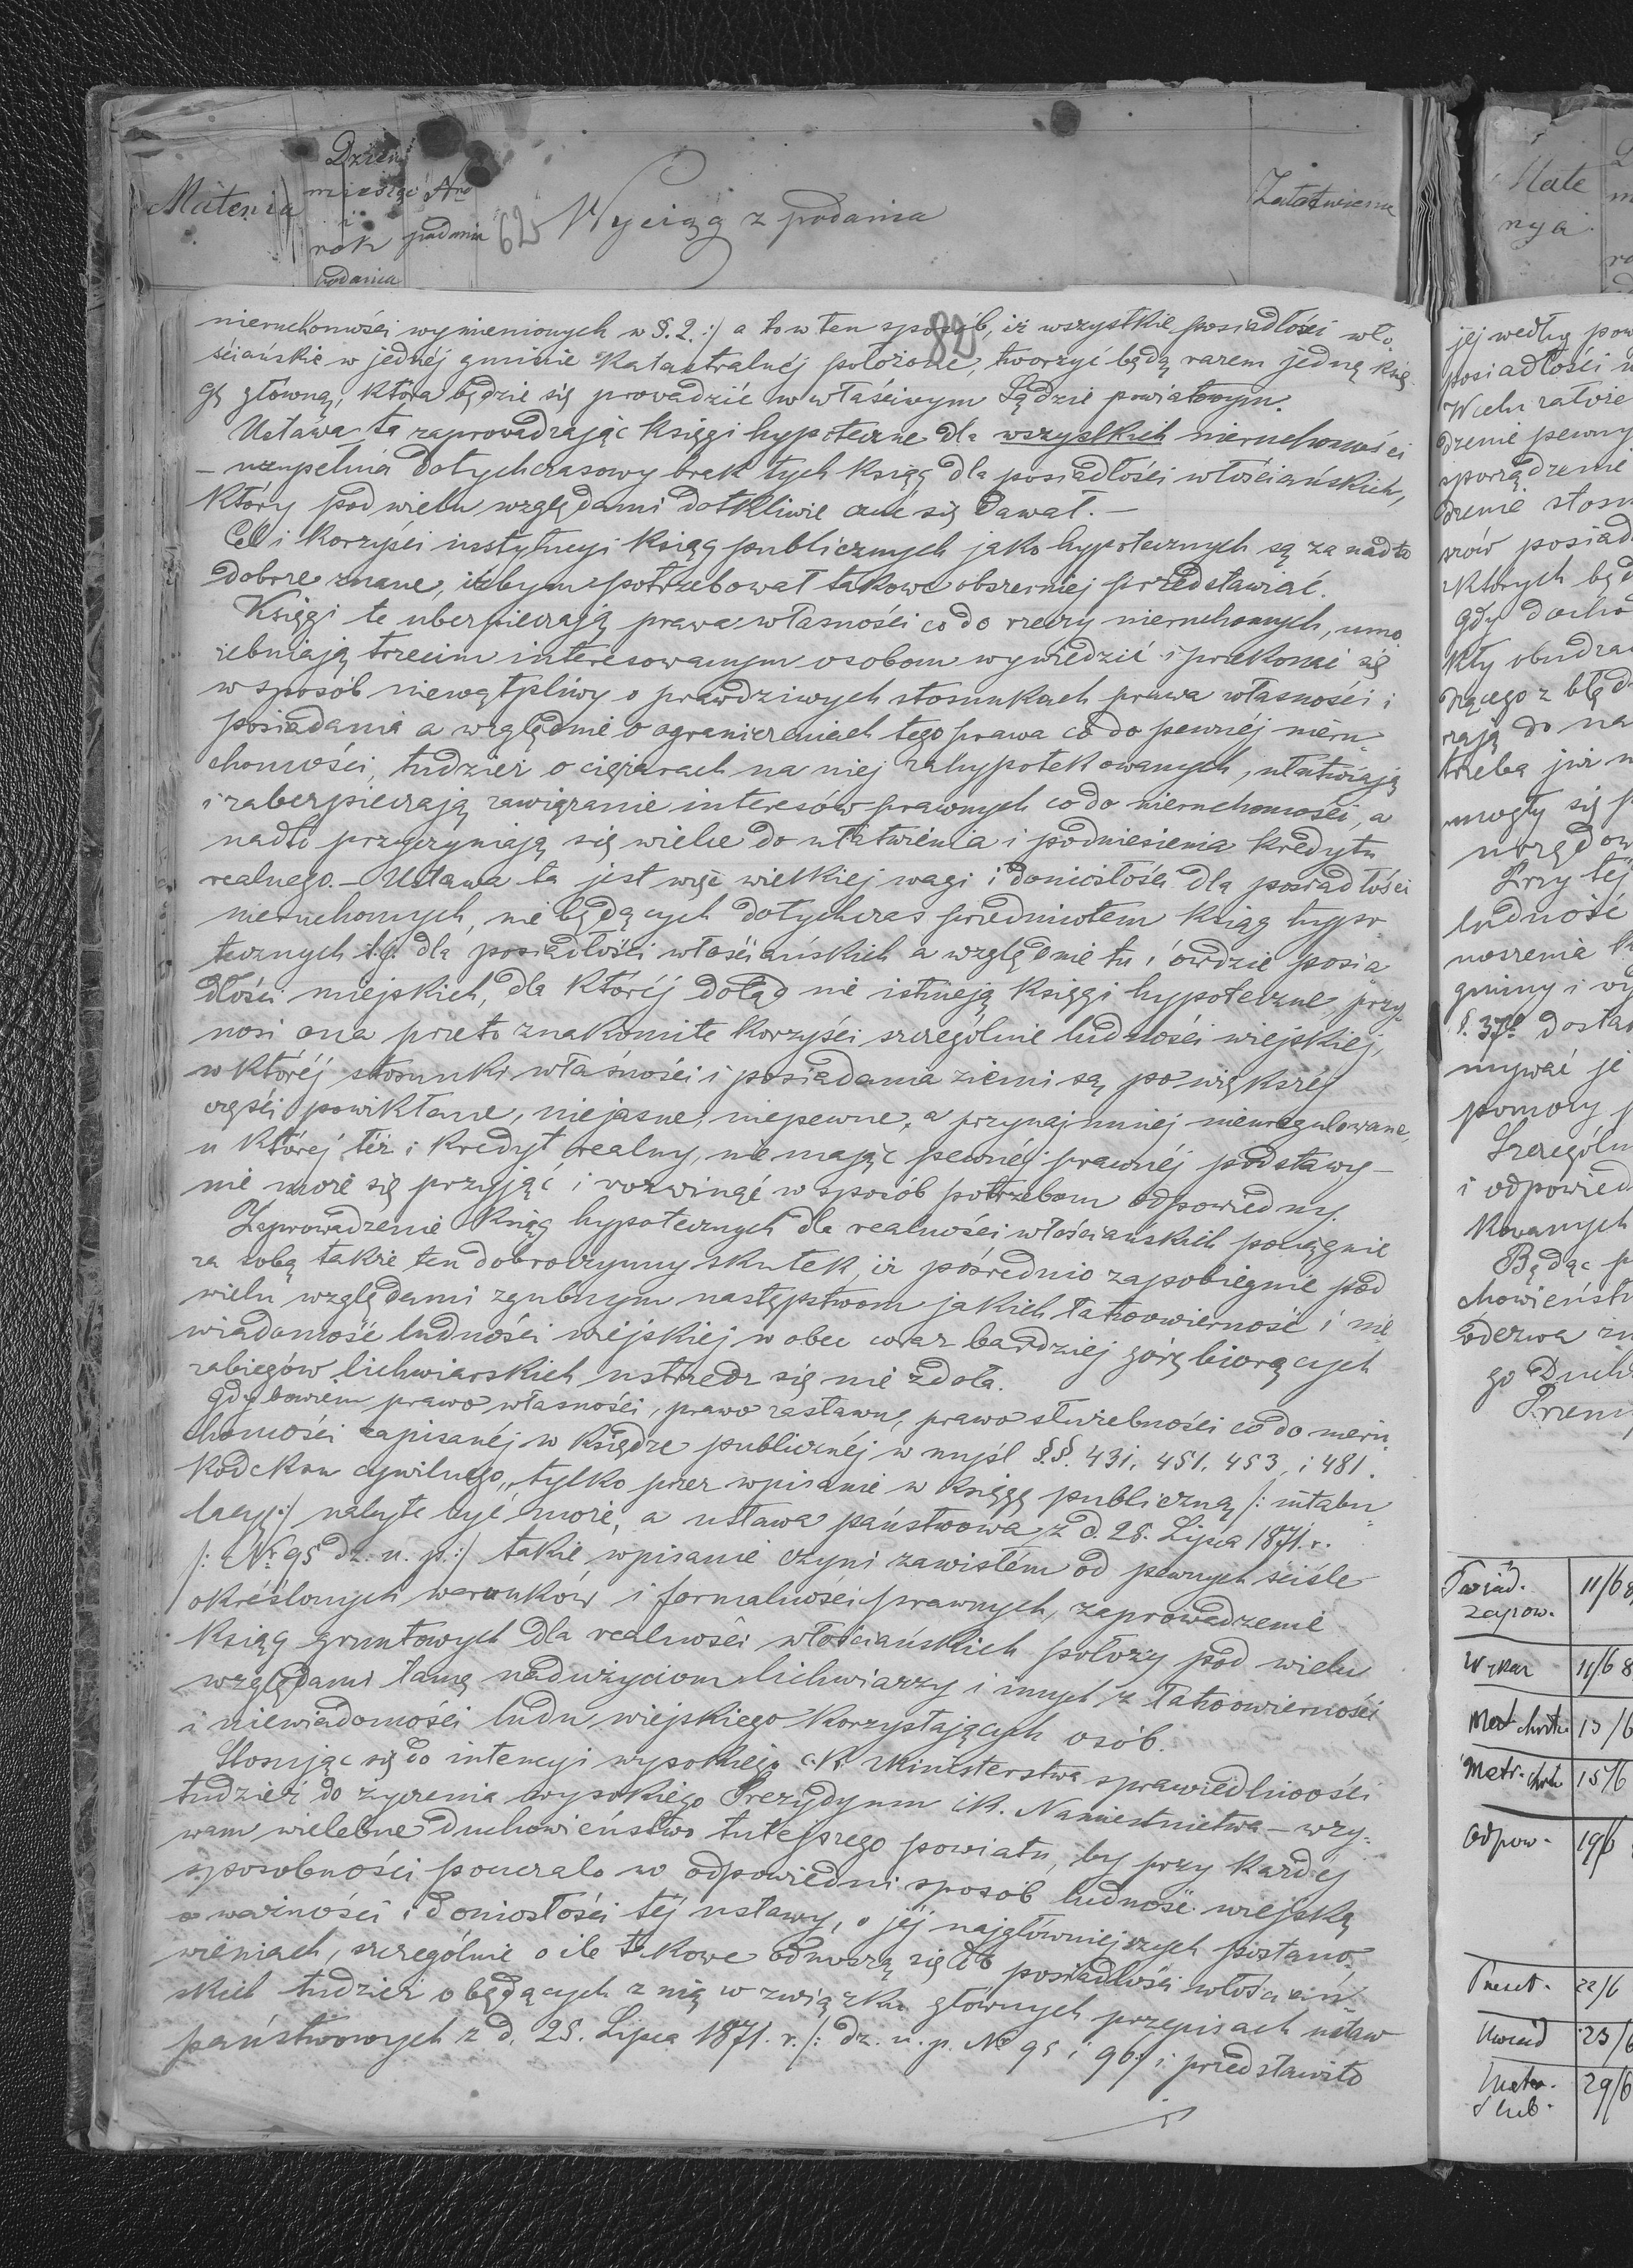 Materia
Dzień
miesiąc
i
rok
podania
Nro
podania
62
Wyciąg z podania
Załatwienie
82
nieruchomości wymienionych w §. 2. :/ a to w ten sposób, iż wszystkie posiadłości wło-
ściańskie w jednéj gminie Katastralnéj położone, tworzyć będą razem jedną księ-
gę główną, która będzie się prowadzić w właściwym Sądzie powiatowym.
Ustawa ta zaprowadzając Księgi hypoteczne dla wszystkich nieruchomości
– uzupełnia dotychczasowy brak tych Ksiąg dla posiadłości włościańskich,
który pod wielu względami dotkliwie czuć się dawał. –
Cel i Korzyści instytucyi Ksiąg publicznych jako hypotecznych są za nadto
dobrze znane, iżbym potrzebował takowe obszerniej przedstawiać.
Księgi te ubezpieczają prawa własności co do rzeczy nieruchomych, umo
żebniają trzecim interesowanym osobom wywiedzić i przekonać się
w sposób niewątpliwy o prawdziwych stosunkach prawa własności i
posiadania a względnie o ograniczeniach tego prawa co do pewnéj nieru-
chomości, tudzież o ciężarach na niej zahypotekowanych, ułatwiają
i zabezpieczają zawiązanie interesów prawnych co do nieruchomości, a
nadto przyczyniają się wielce do ułatwienia i podniesienia Kredytu
realnego. – Ustawa ta jest więc wielkiej wagi i doniosłości dla posiadłości
nieruchomych, nie będących dotychczas przedmiotem Ksiąg hypo-
tecznych t.j. dla posiadłości włościańskich a względnie tu i ówdzie posia
dłości miejskich, dla której dotąd nie istnieją Księgi hypoteczne, przy-
nosi ona przeto znakomite Korzyści szczególnie ludności wiejskiej,
w któréj stosunki własności i posiadania ziemi są po większéj
części powikłane, niejasne, niepewne, a przynajmniej nieuregulowane,
u której téż i Kredyt realny, nie mając pewnéj prawnéj podstawy –
nie może się przyjąć i rozwinąć w sposób potrzebom odpowiedny.
Zaprowadzenie Ksiąg hypotecznych dla realności włościańskich pociągnie
za sobą także ten dobroczynny skutek, iż pośrednio zapobiegnie pod
wielu względami zgubnym następstwom jakich łatwowierność i nie
wiadomość ludności wiejskiej w obec coraz bardziej górę biorących
zabiegów lichwiarskich ustrzedz się nie zdoła.
Gdy bowiem prawo własności, prawo zastawu, prawo służebności co do nieru-
chomości zapisanéj w Księdze publicznéj w myśl §.§. 431. 451. 453. i 481.
Kodeksu cywilnego, tylko przez wpisanie w Księgę publiczną /: intabu-
lacyę :/ nabyte być może, a ustawa państwowa z d. 25. Lipca 1871. r.
/: № 95 dz. u. p. :/ takie wpisanie czyni zawisłem od pewnych ściśle
określonych warunków i formalności prawnych, zaprowadzenie
Ksiąg gruntowych dla realności włościańskich położy pod wielu
względami tamę nadużyciom lichwiarzy i innych z łatwowierności
i niewiadomości ludu wiejskiego Korzystających osób.
Stosując się do intencyi wysokiego c.K. Ministerstwa sprawiedliwości
tudzież do życzenia wysokiego Prezydyum c.K. Namiestnictwa – wzy-
wam wielebne duchowieństwo tutejszego powiatu, by przy Każdej
sposobności pouczało w odpowiedni sposób ludność wiejską
o ważności i doniosłości téj ustawy, o jéj najgłówniejszych postano-
wieniach, szczególnie o ile takowe odnoszą się do posiadłości włościań-
skich tudzież o będących z nią w związku głównych przepisach ustaw
państwowych z d. 25. Lipca 1871. r. /: dz. u. p. № 95 i 96 :/ i przedstawiło
Mate
nya
jej według pow
posiadłości
W celu
dzenie pewny
sporządzenie
dzenie stosu
posiad
których będ
gdy docho
kły obudza
dzącego z błęd
rzają do na
trzeba już
mogły się
urzędow
Przy téj
ludność
noszenia
gminy i wy
§. 37go dostar
mywać je
pomocy
Szczególn
i odpowied
kowanych
Będąc p
chowieńst
odezwa
go Duch
Przem
zapow.
11/6 8
Wykaz
11/6 8
Metr. chrztu
13/6
Metr. chrztu
15/6
Odpow.
19/6
22/6
23/6
Metr.
slub.
29/6